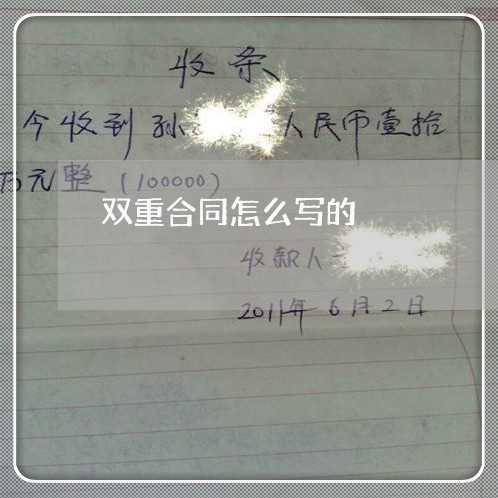 收条
今收到孙 人民币壹拾
万元整(100000)
双重合同怎么写的
收款人
2011年6月2日